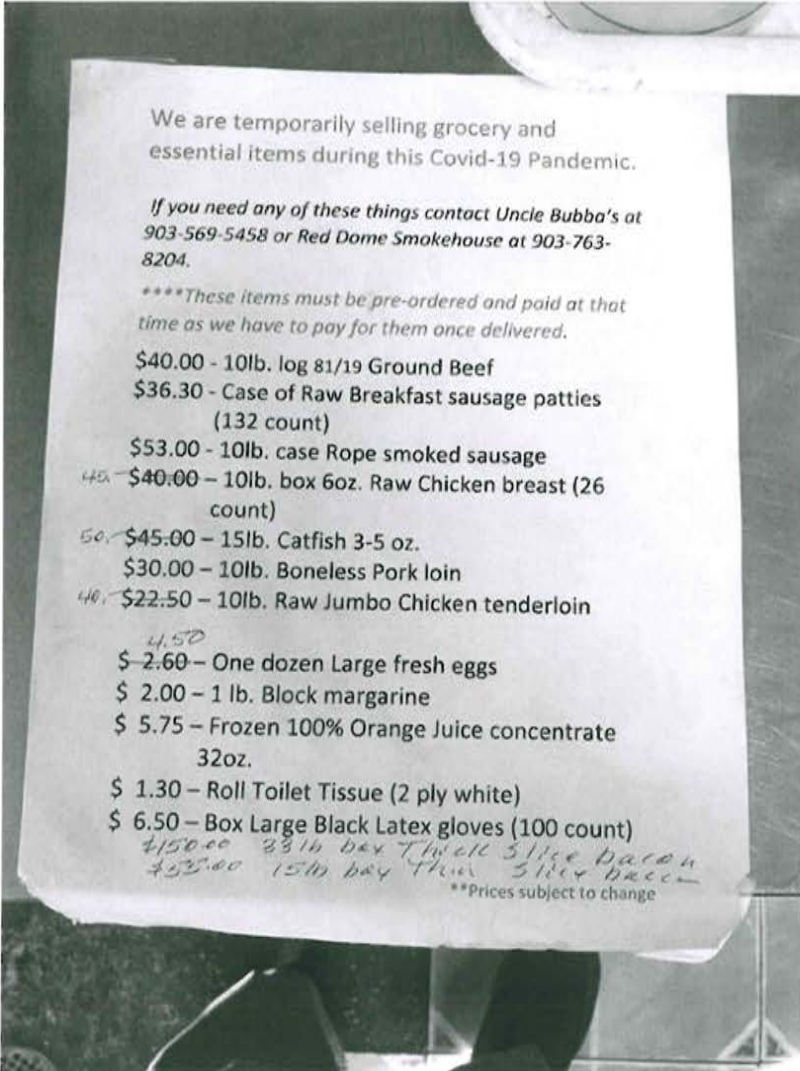 We are temporarily selling grocery and
essential items during this Covid-19 Pandemic.
If you need any of these things contact Uncle Bubba's at
903-569-5458 or Red Dome Smokehouse at 903-763-
8204.
****These items must be pre-ordered and paid at that
time as we have to pay for them once delivered.
$40.00 - 10lb. log 81/19 Ground Beef
$36.30 - Case of Raw Breakfast sausage patties
(132 count)
$53.00 - 10lb. case Rope smoked sausage
45. $40.00 – 10lb. box 6oz. Raw Chicken breast (26
count)
50. $45.00 – 15lb. Catfish 3-5 oz.
$30.00 – 10lb. Boneless Pork loin
40. $22.50 – 10lb. Raw Jumbo Chicken tenderloin
4.50
$ 2.60 – One dozen Large fresh eggs
$ 2.00 – 1 lb. Block margarine
$ 5.75 – Frozen 100% Orange Juice concentrate
32oz.
$ 1.30 – Roll Toilet Tissue (2 ply white)
$ 6.50 – Box Large Black Latex gloves (100 count)
$150.00 33lb box Thick Slice bacon
$55.00 15lb box Thin Slice bacon
**Prices subject to change